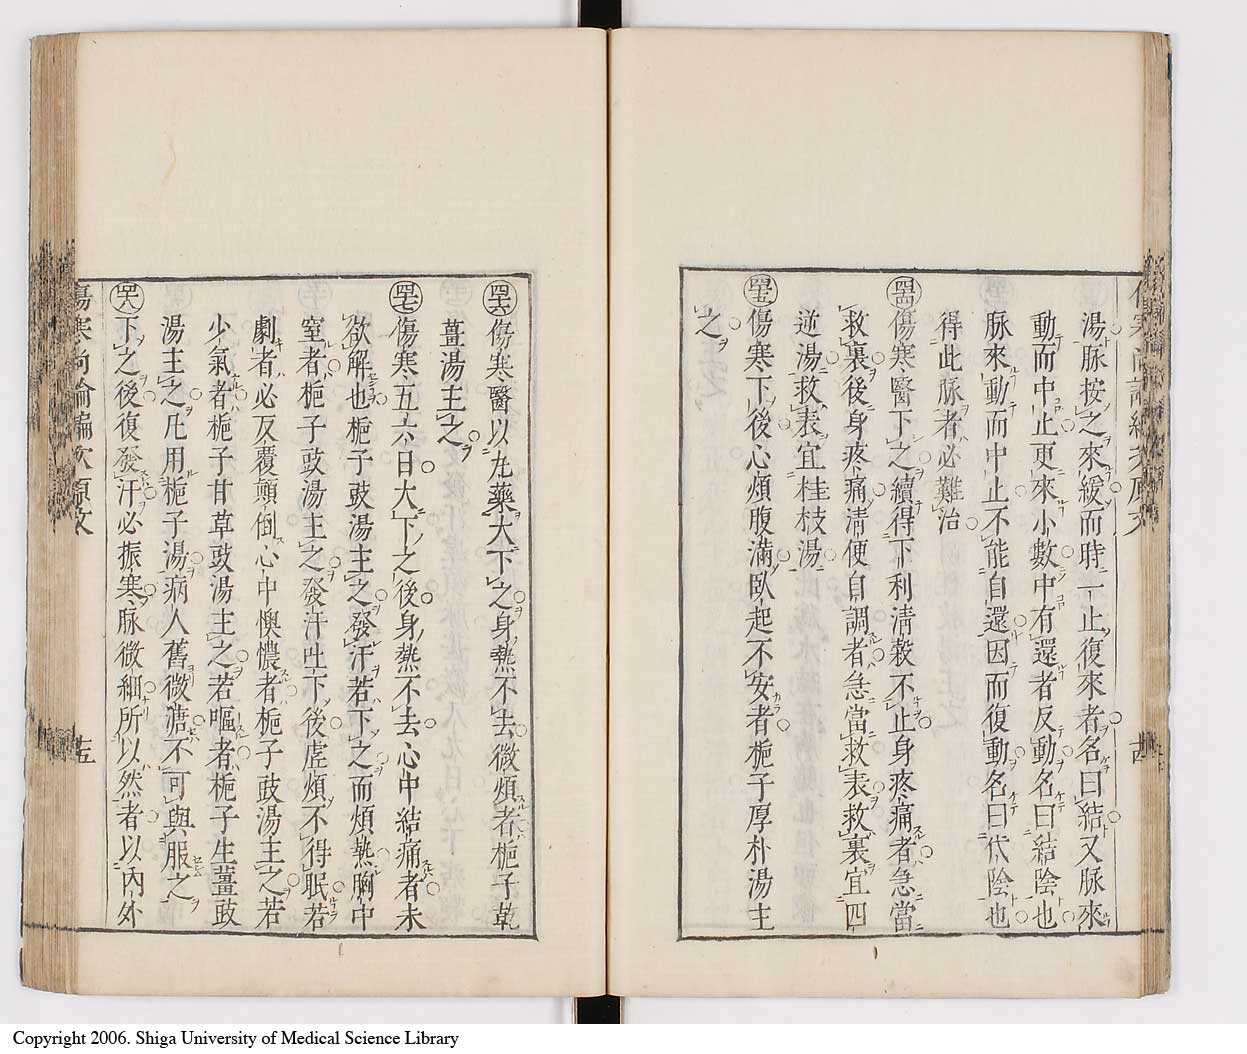 湯脉按之來緩而時一止復來者名曰結又脉來
動而中止更來小數中有還者反動名曰結陰也
脉來動而中止不能自還因而復動名曰代陰也
得此脉者必難治
傷寒醫下之續得下利清穀不止身疼痛者急當
救裏後身疼痛清便自調者急當救表救裏宜四
逆湯救表宜桂枝湯
傷寒下後心煩腹滿臥起不安者梔子厚朴湯主
之
傷寒醫以丸藥大下之身熱不去微煩者梔子乾
薑湯主之
傷寒五六日大下之後身熱不去心中結痛者未
欲解也梔子豉湯主之發汗若下之而煩熱胸中
窒者梔子豉湯主之發汗吐下後虛煩不得眠若
劇者必反覆顛倒心中懊憹者梔子豉湯主之若
少氣者梔子甘草豉湯主之若嘔者梔子生薑豉
湯主之凡用梔子湯病人舊微溏不可與服之
下之後復發汗必振寒脉微細所以然者以內外
傷寒尚論編次類文
十五
Copyright 2006. Shiga University of Medical Science Library